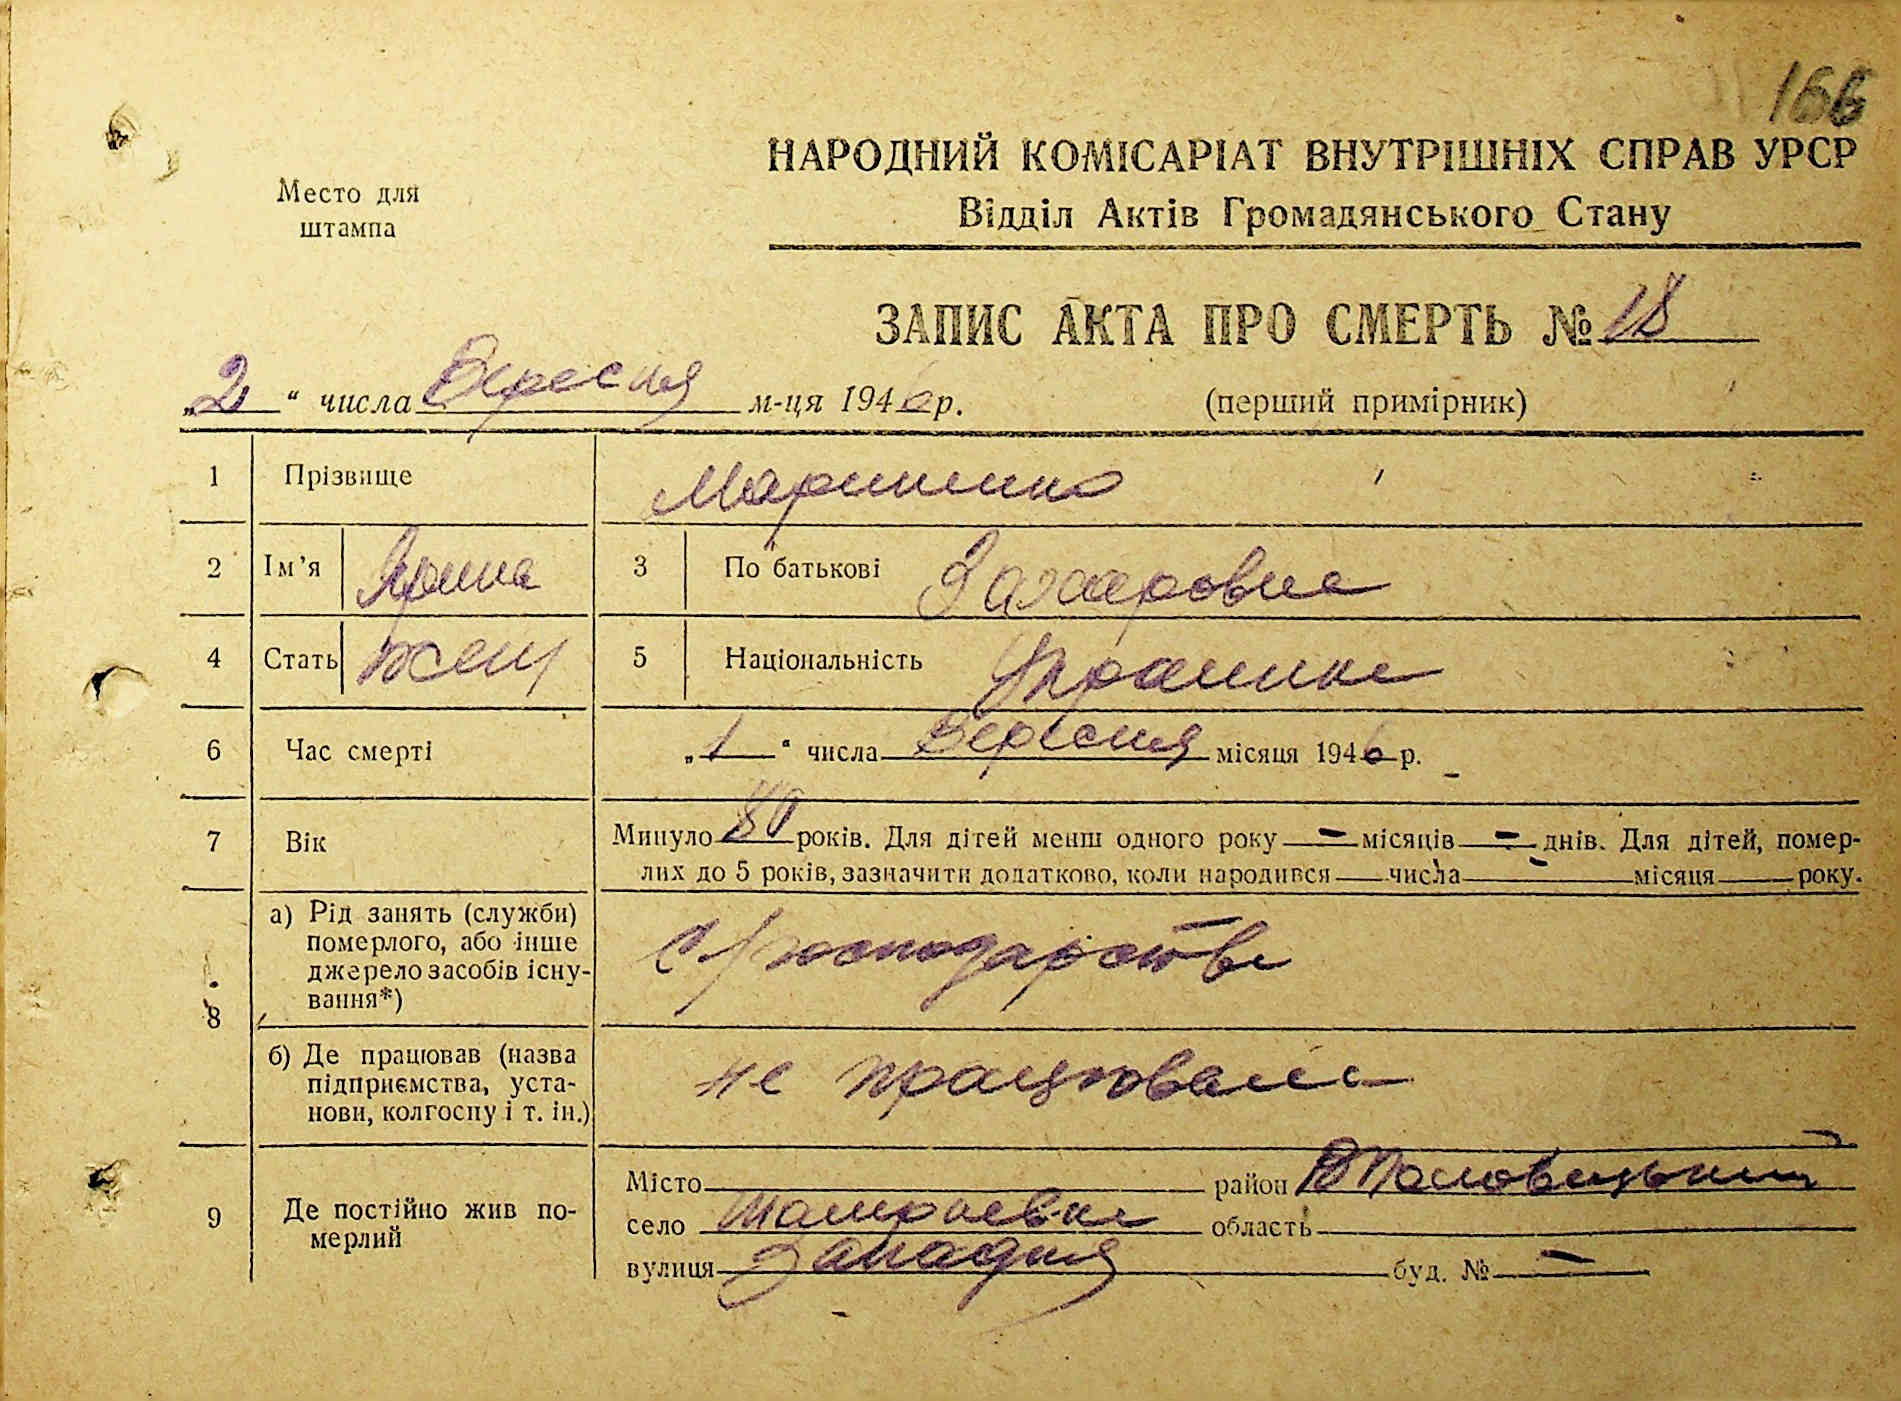 166
НАРОДНИЙ КОМІСАРІАТ ВНУТРІШНІХ СПРАВ УРСР
Место для штампа
Відділ Актів Громадянського Стану
ЗАПИС АКТА ПРО СМЕРТЬ № 18
„2“ числа Вересня м-ця 1946 р. (перший примірник)
1 Прізвище Мариненко
2 Ім’я Ярина 3 По батькові Захаровна
4 Стать жен 5 Національність Украинка
6 Час смерті „1“ числа Вересня місяця 1946 р.
7 Вік Минуло 80 років. Для дітей менш одного року — місяців — днів. Для дітей, помер-
лих до 5 років, зазначити додатково, коли народився числа місяця року.
8 а) Рід занять (служби)
померлого, або інше
джерело засобів існу-
вання*)
господарстве
б) Де працював (назва
підприємства, уста-
нови, колгоспу і т. ін.)
не працювала
9 Де постійно жив по-
мерлий
Місто район
село область
вулиця Западня буд. № —